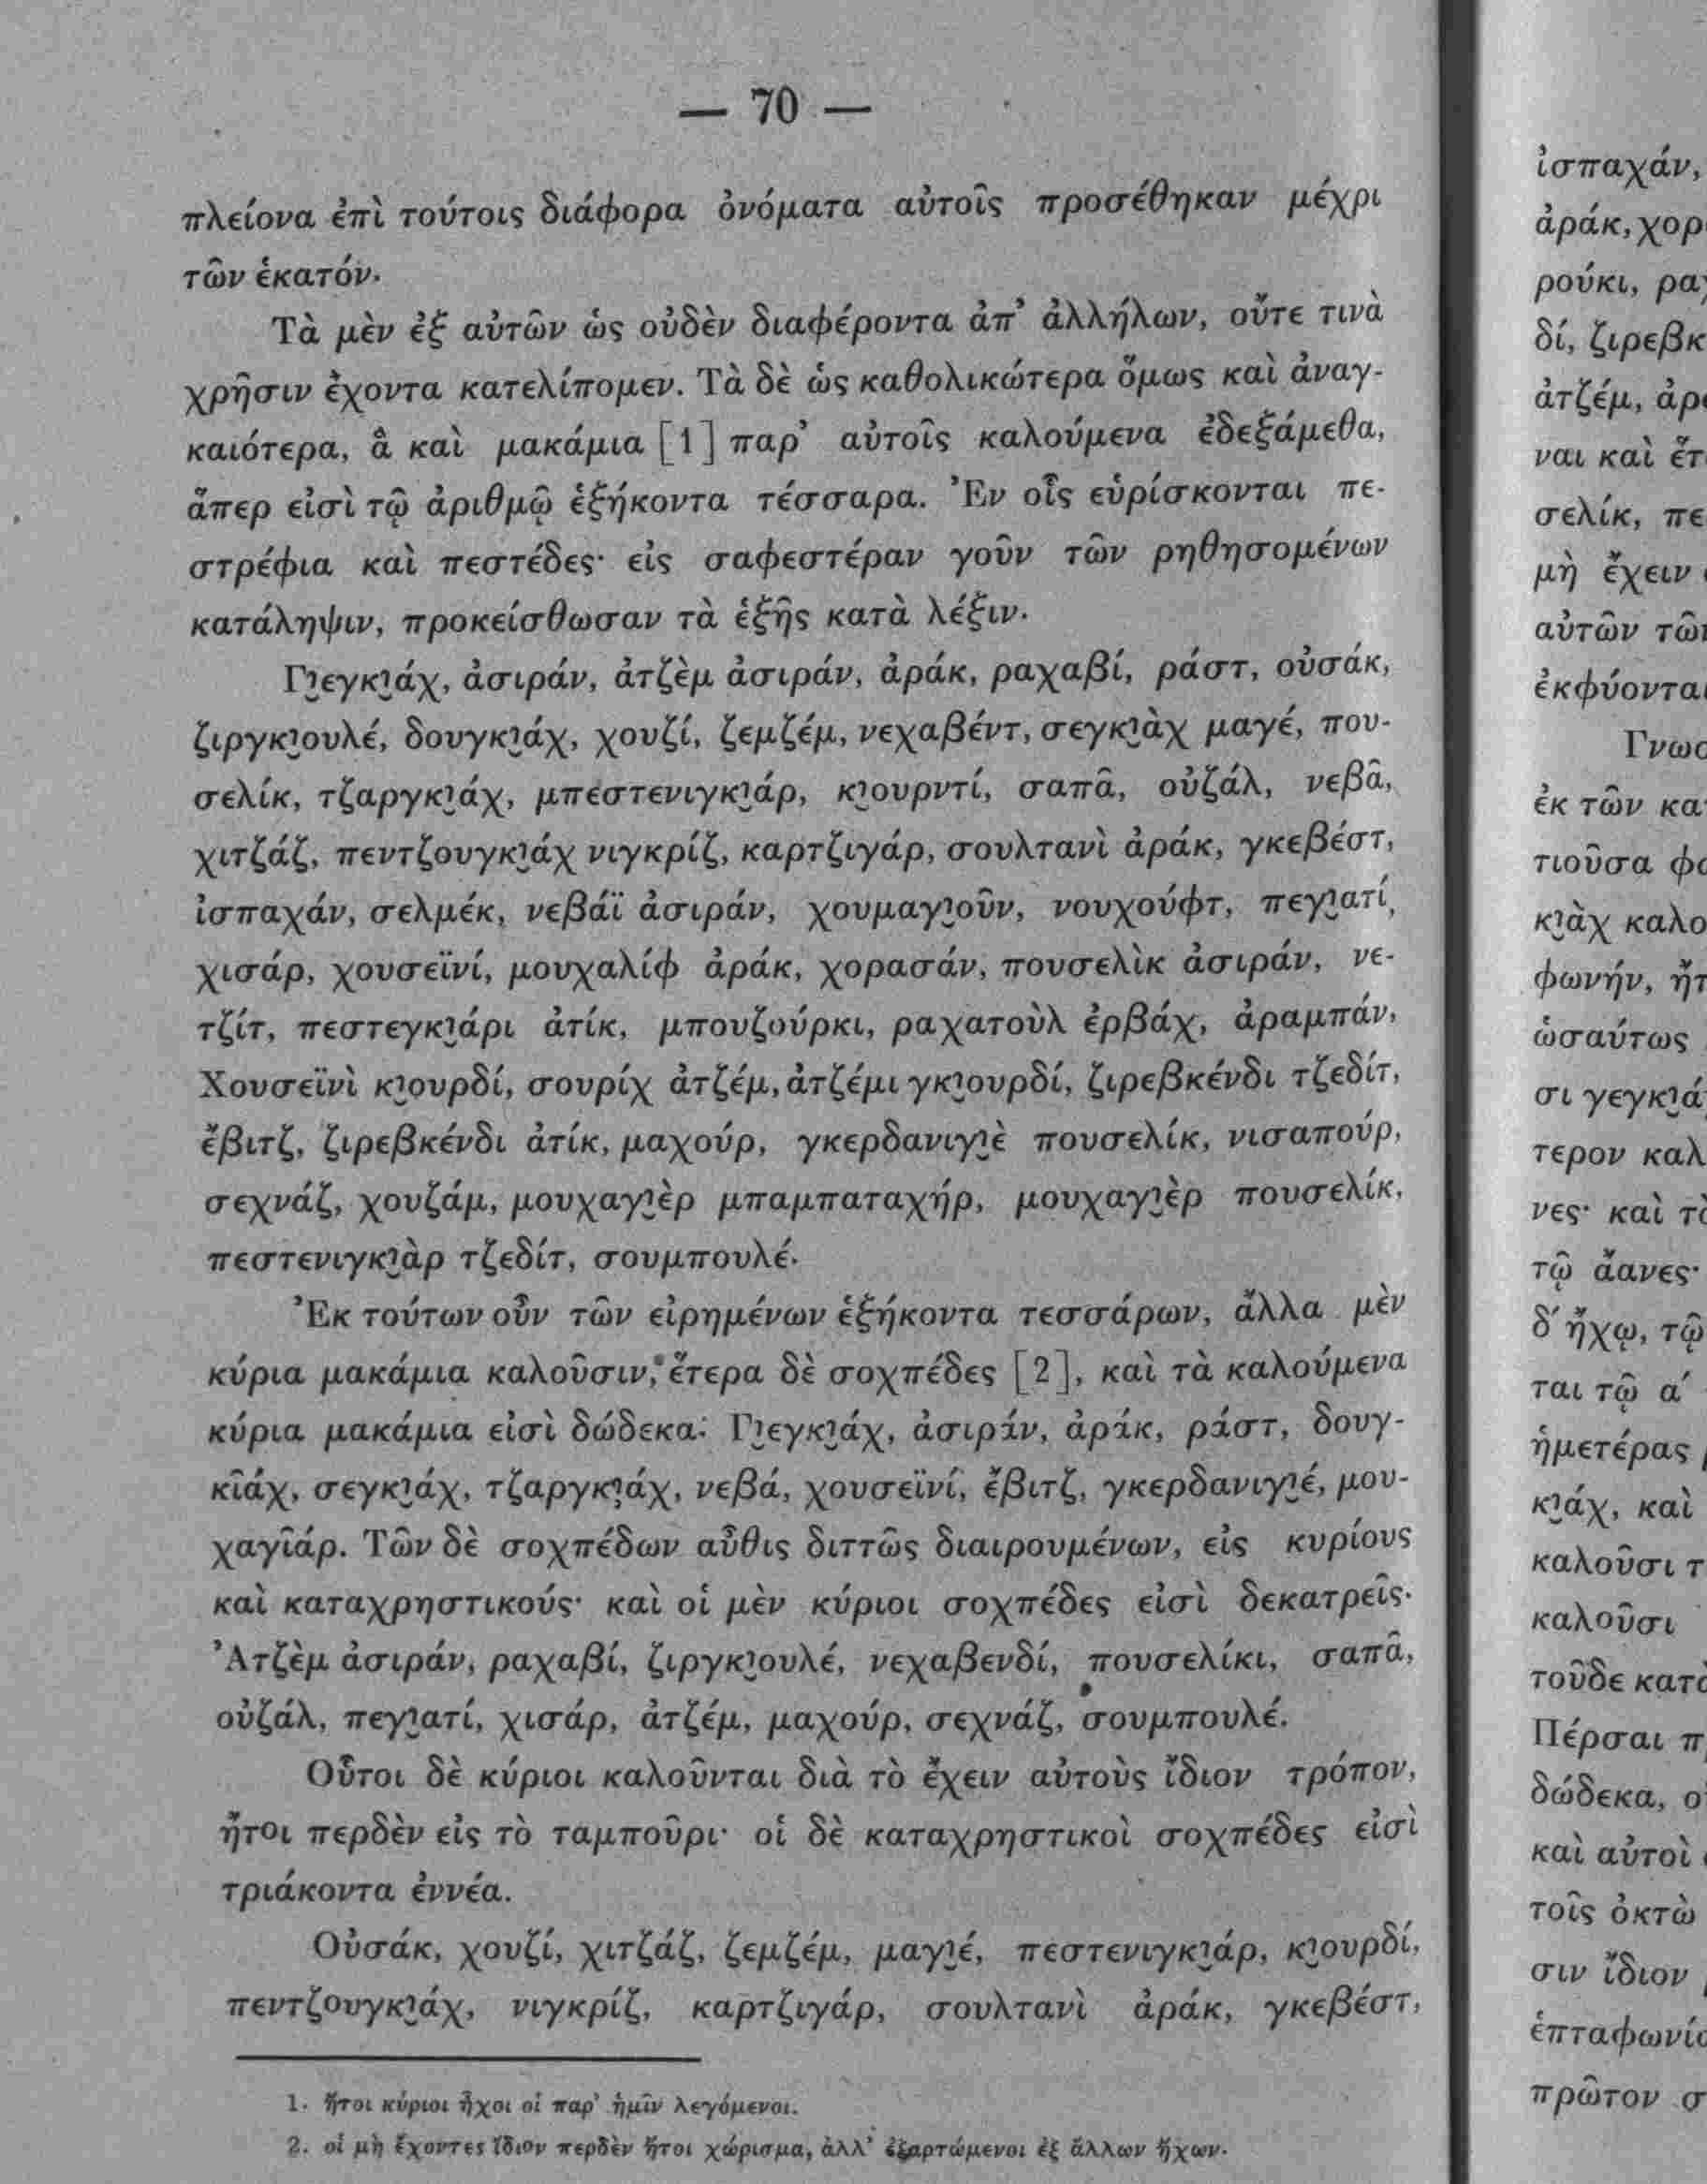 — 70 —
πλείονα ἐπὶ τούτοις διάφορα ὀνόματα αὐτοῖς προσέθηκαν μέχρι
τῶν ἑκατόν.
Τὰ μὲν ἐξ αὐτῶν ὡς οὐδὲν διαφέροντα ἀπ' ἀλλήλων, οὔτε τινὰ
χρῆσιν ἔχοντα κατελίπομεν. Τὰ δὲ ὡς καθολικώτερα ὅμως καὶ ἀναγ-
καιότερα, ἃ καὶ μακάμια [1] παρ' αὐτοῖς καλούμενα ἐδεξάμεθα,
ἅπερ εἰσὶ τῷ ἀριθμῷ ἑξήκοντα τέσσαρα. Ἐν οἷς εὑρίσκονται πε-
στρέφια καὶ πεστέδες· εἰς σαφεστέραν γοῦν τῶν ῥηθησομένων
κατάληψιν, προκείσθωσαν τὰ ἑξῆς κατὰ λέξιν.
Γι̮εγκι̮άχ, ἀσιράν, ἀτζὲμ ἀσιράν, ἀράκ, ραχαβί, ράστ, οὐσάκ,
ζιργκι̮ουλέ, δουγκι̮άχ, χουζί, ζεμζέμ, νεχαβέντ, σεγκι̮ὰχ μαγέ, που-
σελίκ, τζαργκι̮άχ, μπεστενιγκι̮άρ, κι̮ουρντί, σαπᾶ, οὐζάλ, νεβᾶ,
χιτζάζ, πεντζουγκι̮άχ νιγκρίζ, καρτζιγάρ, σουλτανὶ ἀράκ, γκεβέστ,
ἰσπαχάν, σελμέκ, νεβάϊ ἀσιράν, χουμαγι̮οῦν, νουχούφτ, πεγι̮ατί,
χισάρ, χουσεϊνί, μουχαλίφ ἀράκ, χορασάν, πουσελὶκ ἀσιράν, νε-
τζίτ, πεστεγκι̮άρι ἀτίκ, μπουζούρκι, ραχατοὺλ ἐρβάχ, ἀραμπάν,
Χουσεϊνὶ κι̮ουρδί, σουρίχ ἀτζέμ, ἀτζέμι γκι̮ουρδί, ζιρεβκένδι τζεδίτ,
ἔβιτζ, ζιρεβκένδι ἀτίκ, μαχούρ, γκερδανιγι̮ὲ πουσελίκ, νισαπούρ,
σεχνάζ, χουζάμ, μουχαγι̮ὲρ μπαμπαταχήρ, μουχαγι̮ὲρ πουσελίκ,
πεστενιγκι̮ὰρ τζεδίτ, σουμπουλέ.
Ἐκ τούτων οὖν τῶν εἰρημένων ἑξήκοντα τεσσάρων, ἄλλα μὲν
κύρια μακάμια καλοῦσιν, ἕτερα δὲ σοχπέδες [2], καὶ τὰ καλούμενα
κύρια μακάμια εἰσὶ δώδεκα: Γι̮εγκι̮άχ, ἀσιράν, ἀράκ, ράστ, δουγ-
κι̑άχ, σεγκι̮άχ, τζαργκι̮άχ, νεβά, χουσεϊνί, ἔβιτζ, γκερδανιγι̮έ, μου-
χαγι̑άρ. Τῶν δὲ σοχπέδων αὖθις διττῶς διαιρουμένων, εἰς κυρίους
καὶ καταχρηστικούς· καὶ οἱ μὲν κύριοι σοχπέδες εἰσὶ δεκατρεῖς·
Ἀτζὲμ ἀσιράν, ραχαβί, ζιργκι̮ουλέ, νεχαβενδί, πουσελίκι, σαπᾶ,
οὐζάλ, πεγι̮ατί, χισάρ, ἀτζέμ, μαχούρ, σεχνάζ, σουμπουλέ.
Οὗτοι δὲ κύριοι καλοῦνται διὰ τὸ ἔχειν αὐτοὺς ἴδιον τρόπον,
ἤτοι περδὲν εἰς τὸ ταμποῦρι· οἱ δὲ καταχρηστικοὶ σοχπέδες εἰσὶ
τριάκοντα ἐννέα.
Οὐσάκ, χουζί, χιτζάζ, ζεμζέμ, μαγι̮έ, πεστενιγκι̮άρ, κι̮ουρδί,
πεντζουγκι̮άχ, νιγκρίζ, καρτζιγάρ, σουλτανὶ ἀράκ, γκεβέστ,
1. ἤτοι κύριοι ἦχοι οἱ παρ' ἡμῖν λεγόμενοι.
2. οἱ μὴ ἔχοντες ἴδιον περδὲν ἤτοι χώρισμα, ἀλλ' ἐξαρτώμενοι ἐξ ἄλλων ἤχων.
ἰσπαχάν,
ἀράκ, χορ
ρούκι, ρα
δί, ζιρεβκ
ἀτζέμ, ἀρ
ναι καὶ ἕτ
σελίκ, πε
μὴ ἔχειν
αὐτῶν τῶν
ἐκφύονται
Γνωσ
ἐκ τῶν κα
τιοῦσα φ
κι̮ὰχ καλο
φωνήν, ἤτ
ὡσαύτως
σι γεγκι̮ά
τερον καλ
νες· καὶ τὸ
τῷ ἄανες·
δ' ἤχῳ, τῷ
ται τῷ α'
ἡμετέρας
κι̮άχ, καὶ
καλοῦσι τ
καλοῦσι
τοῦδε κατὰ
Πέρσαι π
δώδεκα, ο
καὶ αὐτοὶ
τοῖς ὀκτὼ
σιν ἴδιον
ἑπταφωνία
πρῶτον σ